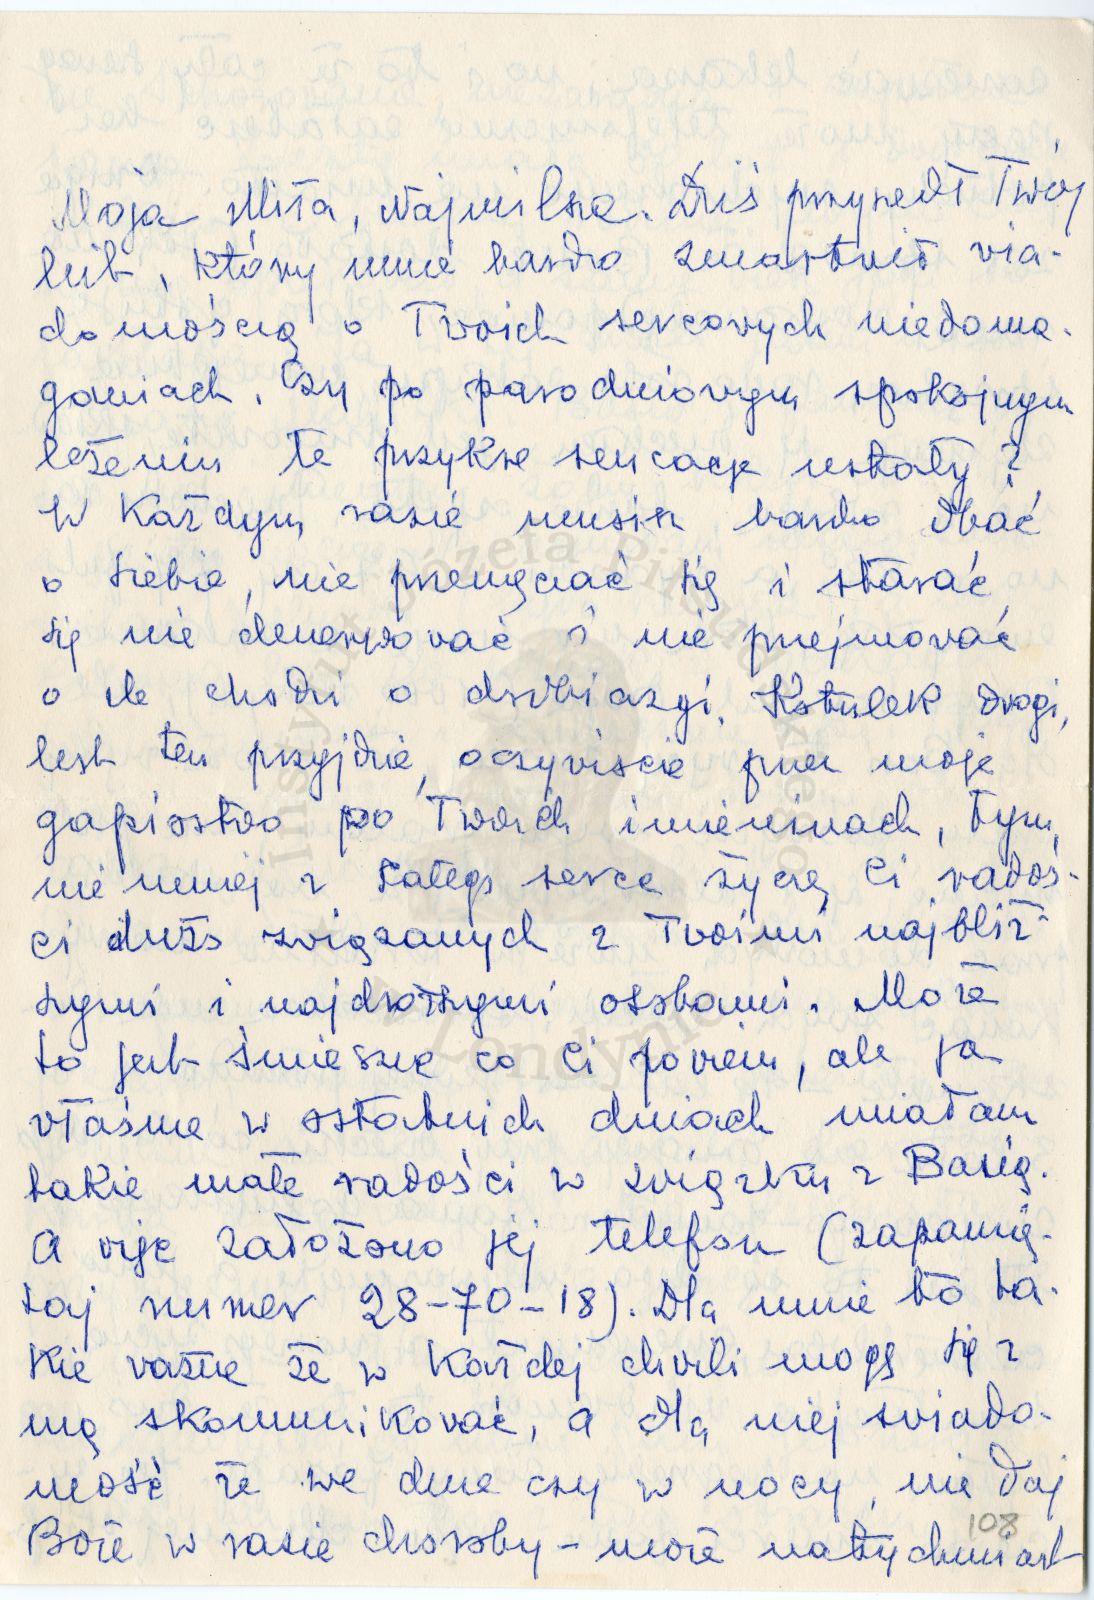 Moja Miła, Najmilsza. Dziś przyszedł Twój
list, który mnie bardzo zmartwił wia-
domością o Twoich sercowych niedoma-
ganiach. Czy po parodniowym spokojnym
leżeniu te przykre sensacje ustały?
W każdym razie musisz bardzo dbać
o siebie, nie przemęczać się i starać
się nie denerwować i nie przejmować
o ile chodzi o drobiazgi. Kotulek drogi,
list ten przyjdzie, oczywiście przez moje
gapiostwo po Twoich imieninach, tym
nie mniej z całego serca życzę Ci radoś-
ci dużo związanych z Twoimi najbliż-
szymi i najdroższymi osobami. Może
to jest śmieszne co Ci powiem, ale ja
właśnie w ostatnich dniach miałam
takie małe radości w związku z Basią.
A więc założono jej telefon (zapamię-
taj numer 28-70-18). Dla mnie to ta-
kie ważne że w każdej chwili mogę się z
nią skomunikować, a dla niej świado-
mość że we dnie czy w nocy, nie daj
Boże w razie choroby - może natychmiast
108
Instytut Józefa Piłsudskiego
w Londynie